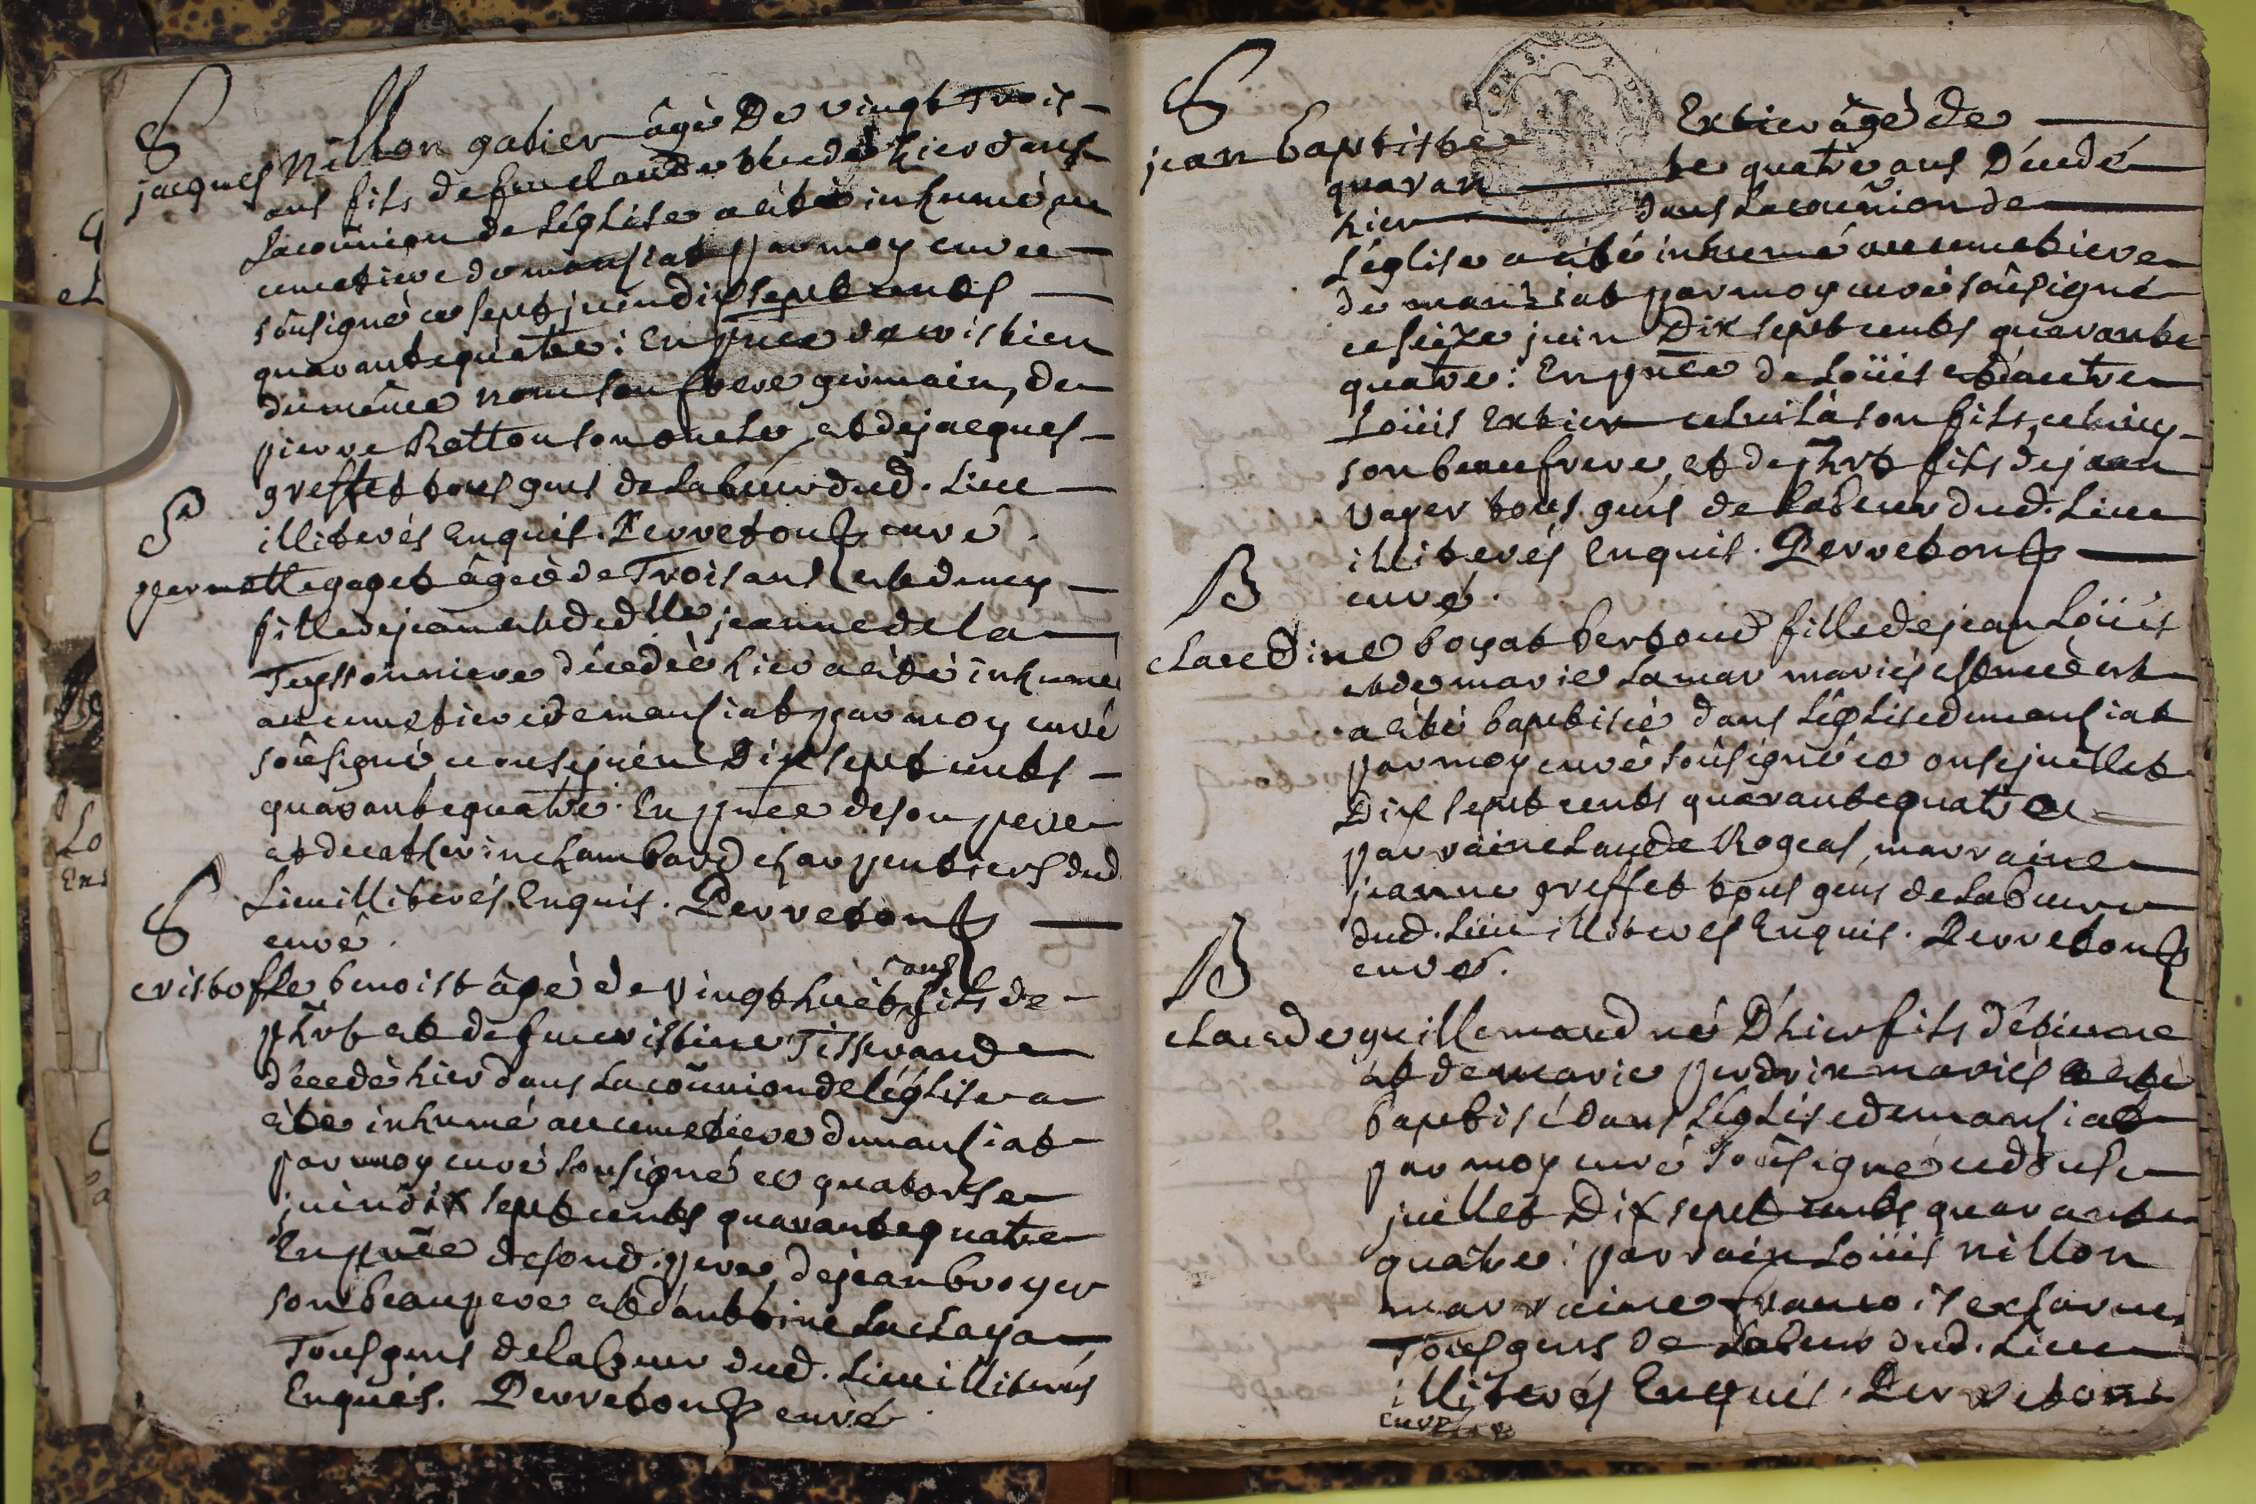 S
jacques Nillon gatier âgé De vingt Trois
ans fils de feu claude décédé hier dans
la coûnion de l'église a été inhumé au
cimetiere de mansiat par moy curé
soûsigné ce sept juin dix sept cents
quarante quatre : En pñce de cristien
du même nom son frere germain, de
pierre Rollon son oncle, et de jacques
greffet tous gens de labeur dud. Lieu
illiterés Enquis. Perreton curé.
S
pernette gaget âgée de Trois ans et demy
fille de jean et de dlle jeanne de la
Teyssonniere décédée hier a été inhumé
au cimetiere de mansiat par moy curé
soûsigné ce onse juin Dix sept cents
quarante quatre. En pñce de son pere
et de catherin chambard charpentiers dud
Lieu illiterés Enquis. Perreton
curé.
S
cristoffle benoist âgé de vingt huit ans fils de
phrt et de feue cristine Tisserand
décédé hier dans la coûnion de l'église a
été inhumé au cimetiere de mansiat
par moy curé sousigné ce quatorse
juin dix sept cents quarante quatre
En pñce de son d. pere, de jean broyer
son beau pere et d'anthoine
Tous gens de labeur dud. Lieu illiterés
Enquis. Perreton curé
S
jean baptiste Extier âgé de
quaran te quatre ans Décédé
hier dans la coûnion de
l'église a été inhumé au cimetiere
de mansiat par moy curé soûsigné
ce seize juin Dix sept cents quarante
quatre : En pñce de Loüis et d'autre
Loüis Extier celui là son fils, celuicy
son beaufrere, et de phrt fils de jean
vayer tous gens de labeur dud. Lieu
illiterés Enquis. Perreton
curé.
B
claudine boyat bertoud fille de jean Loüis
et de marie Lamar mariés est née et
a été baptisée dans l'église de mansiat
par moy curé soûsigné ce onse juillet
Dix sept cents quarante quatre
parrain claude Rogeas, marraine
jeanne greffet tous gens de labeur
dud. Lieu illiterés Enquis. Perreton
curé.
B
claude guillemaud né D'hier fils d'étienne
et de marie perdrix mariés a été
baptisé dans l'église de mansiat
par moy curé soûsigné ce douse
juillet Dix sept cents quarante
quatre : parrain Loüis nillon
marraine francoise
Tous gens de labeur dud. Lieu
illiterés Enquis. Perreton
curé